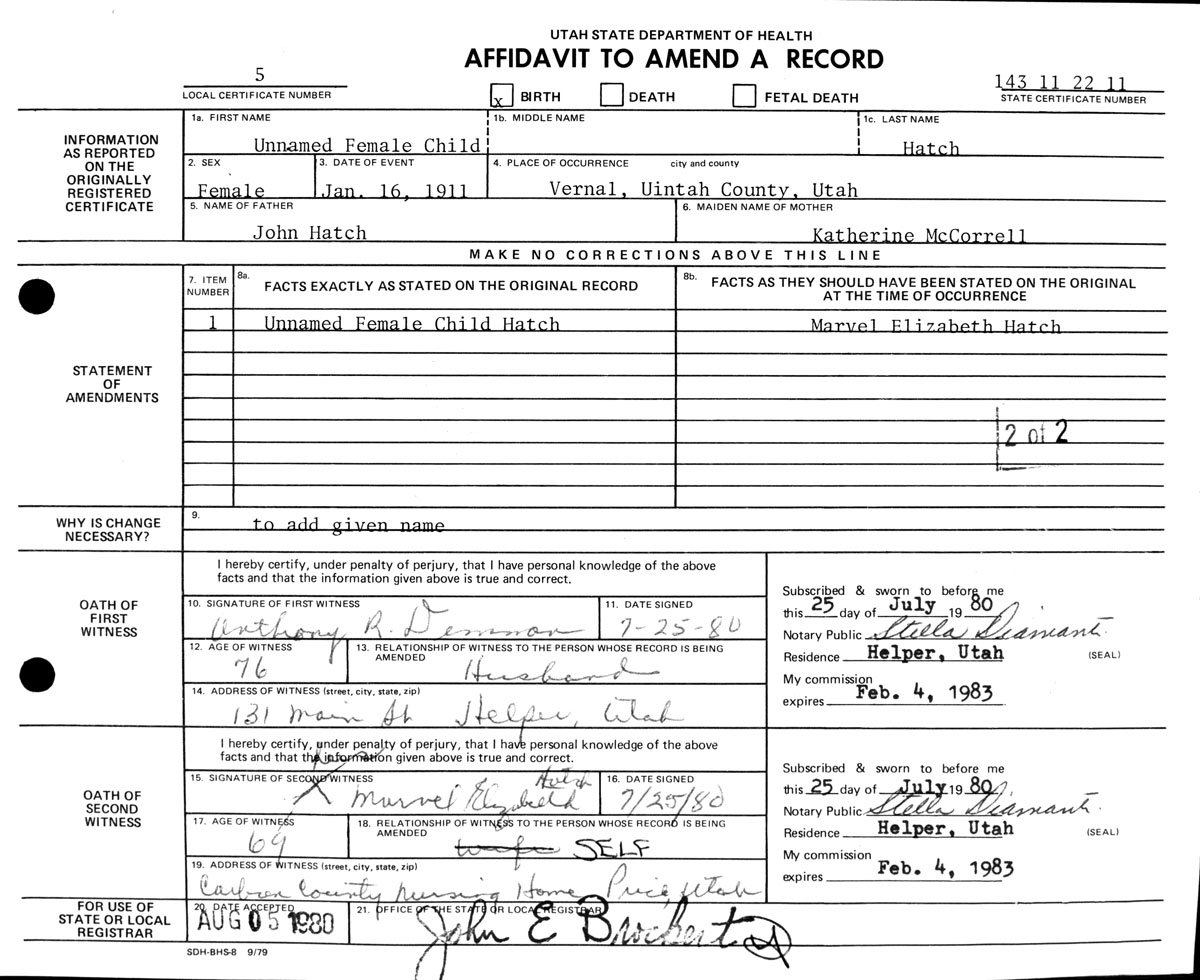 UTAH STATE DEPARTMENT OF HEALTH
AFFIDAVIT TO AMEND A RECORD
5
LOCAL CERTIFICATE NUMBER
x BIRTH DEATH FETAL DEATH
143 11 22 11
STATE CERTIFICATE NUMBER
INFORMATION AS REPORTED ON THE ORIGINALLY REGISTERED CERTIFICATE
1a. FIRST NAME 1b. MIDDLE NAME 1c. LAST NAME
Unnamed Female Child Hatch
2. SEX 3. DATE OF EVENT 4. PLACE OF OCCURRENCE city and county
Female Jan. 16, 1911 Vernal, Uintah County, Utah
5. NAME OF FATHER 6. MAIDEN NAME OF MOTHER
John Hatch Katherine McCorrell
MAKE NO CORRECTIONS ABOVE THIS LINE
STATEMENT OF AMENDMENTS
7. ITEM NUMBER
8a. FACTS EXACTLY AS STATED ON THE ORIGINAL RECORD
8b. FACTS AS THEY SHOULD HAVE BEEN STATED ON THE ORIGINAL
AT THE TIME OF OCCURRENCE
1 Unnamed Female Child Hatch Marvel Elizabeth Hatch
2 of 2
WHY IS CHANGE NECESSARY?
9. to add given name
OATH OF FIRST WITNESS
I hereby certify, under penalty of perjury, that I have personal knowledge of the above
facts and that the information given above is true and correct.
10. SIGNATURE OF FIRST WITNESS 11. DATE SIGNED
Anthony R. Demman 7-25-80
12. AGE OF WITNESS 13. RELATIONSHIP OF WITNESS TO THE PERSON WHOSE RECORD IS BEING
AMENDED
76 Husband
14. ADDRESS OF WITNESS (street, city, state, zip)
131 Main St Helper, Utah
Subscribed & sworn to before me
this 25 day of July 1980
Notary Public Stella Diamanti
Residence Helper, Utah (SEAL)
My commission
expires Feb. 4, 1983
OATH OF SECOND WITNESS
I hereby certify, under penalty of perjury, that I have personal knowledge of the above
facts and that the information given above is true and correct.
15. SIGNATURE OF SECOND WITNESS 16. DATE SIGNED
X Marvel Elizabeth Hatch 7/25/80
17. AGE OF WITNESS 18. RELATIONSHIP OF WITNESS TO THE PERSON WHOSE RECORD IS BEING
AMENDED
69 SELF
19. ADDRESS OF WITNESS (street, city, state, zip)
Carbon County Nursing Home, Price, Utah
Subscribed & sworn to before me
this 25 day of July 1980
Notary Public Stella Diamanti
Residence Helper, Utah (SEAL)
My commission
expires Feb. 4, 1983
FOR USE OF STATE OR LOCAL REGISTRAR
20. DATE ACCEPTED 21. OFFICE OF THE STATE OR LOCAL REGISTRAR
AUG 05 1980 John E Brockert
SDH-BHS-8 9/79